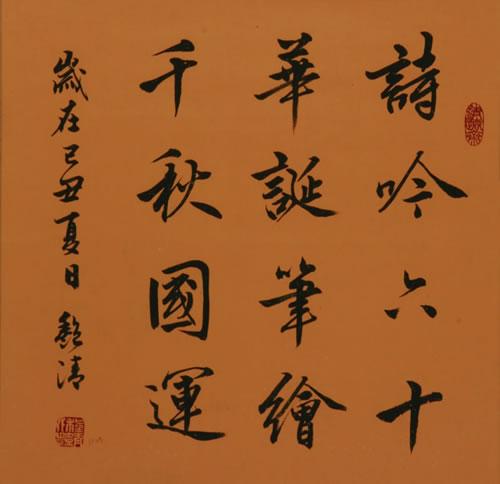 詩吟六十
華誕筆繪
千秋國運
歲在己丑夏日 清